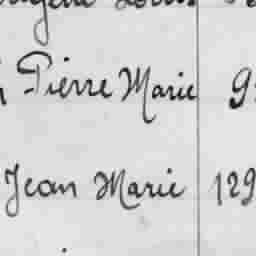 Pierre Marie 9
Jean Marie 129